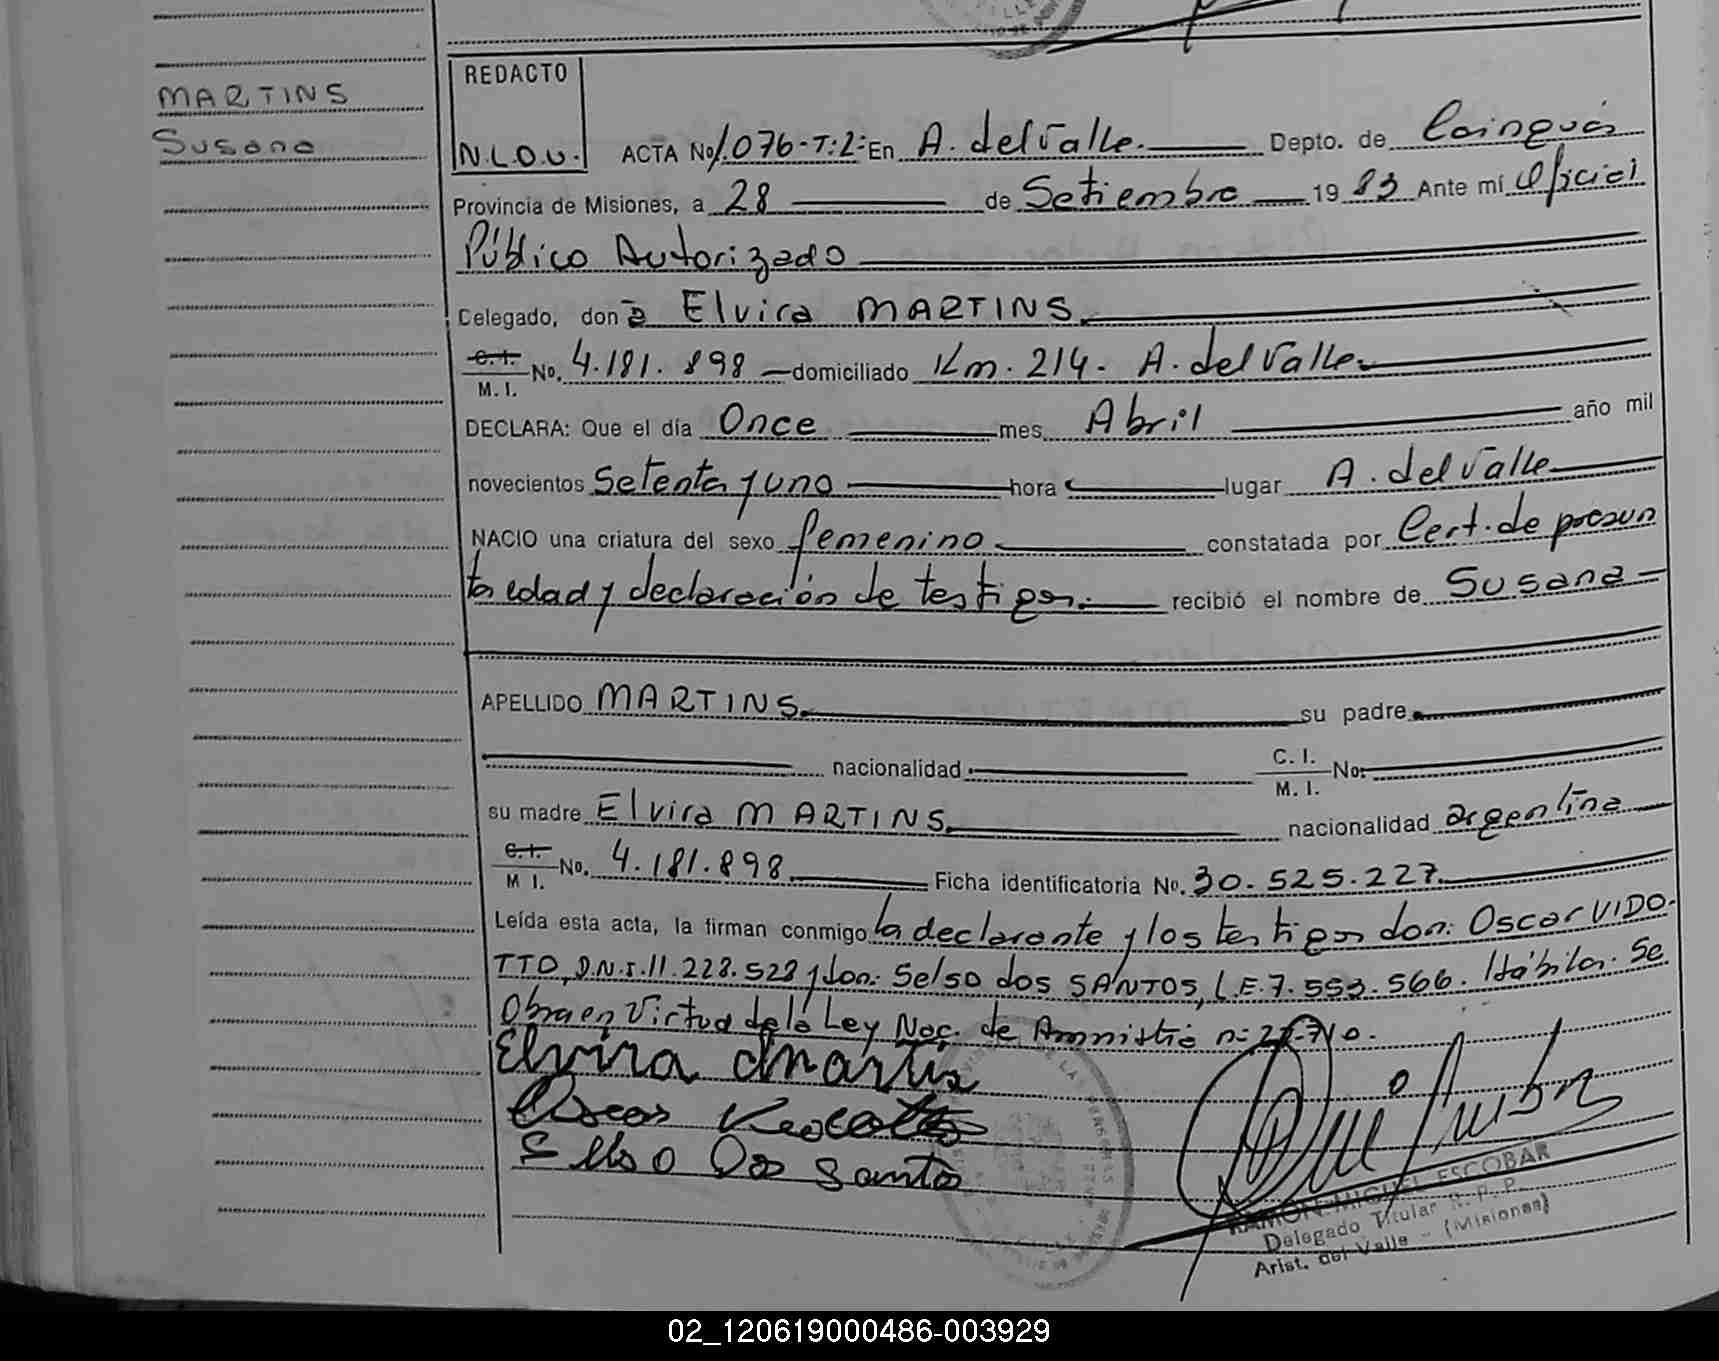 MARTINS
Susana
REDACTO
N.L.O.U.
ACTA No 1.076-T:2: En A. del Valle. Depto. de Cainguás
Provincia de Misiones, a 28 de Setiembre 19 83 Ante mí Oficial
Público Autorizado
Celegado, don a Elvira MARTINS.
C.I. M.I. No. 4.181.898 domiciliado Km. 214. A. del Valle.
DECLARA: Que el día Once mes Abril año mil
novecientos Setenta y uno hora lugar A. del Valle
NACIO una criatura del sexo femenino constatada por Cert. de presun
ta edad y declaración de testigos. recibió el nombre de Susana
APELLIDO MARTINS. su padre
nacionalidad C.I. M.I. No.
su madre Elvira MARTINS. nacionalidad argentina
C.I. M I. No. 4.181.898 Ficha identificatoria No. 30.525.227.
Leída esta acta, la firman conmigo la declarante y los testigos don: Oscar VIDO-
TTO, D.N.I. 11.228.528 y don: Selso dos SANTOS, L.E. 7.553.566. Hábiles. Se
Obra en Virtud de la Ley Nac. de Amnistía nº 22.710.
Elvira Martins
Selso Dos Santos
RAMON MIGUEL ESCOBAR
Delegado Titular R.P.P.
Arist. del Valle - (Misiones)
02_120619000486-003929